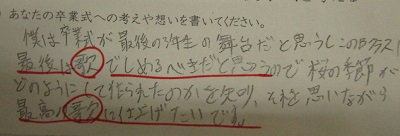 あなたの卒業式への考えや想いを書いてください。
僕は卒業式が最後の3年生の舞台だと思うしこのクラス!
最後は歌でしめるべきだと思うので桜の季節が
どのようにして作られたのかを知り、それを思いながら
最高の歌に仕上げたいです。